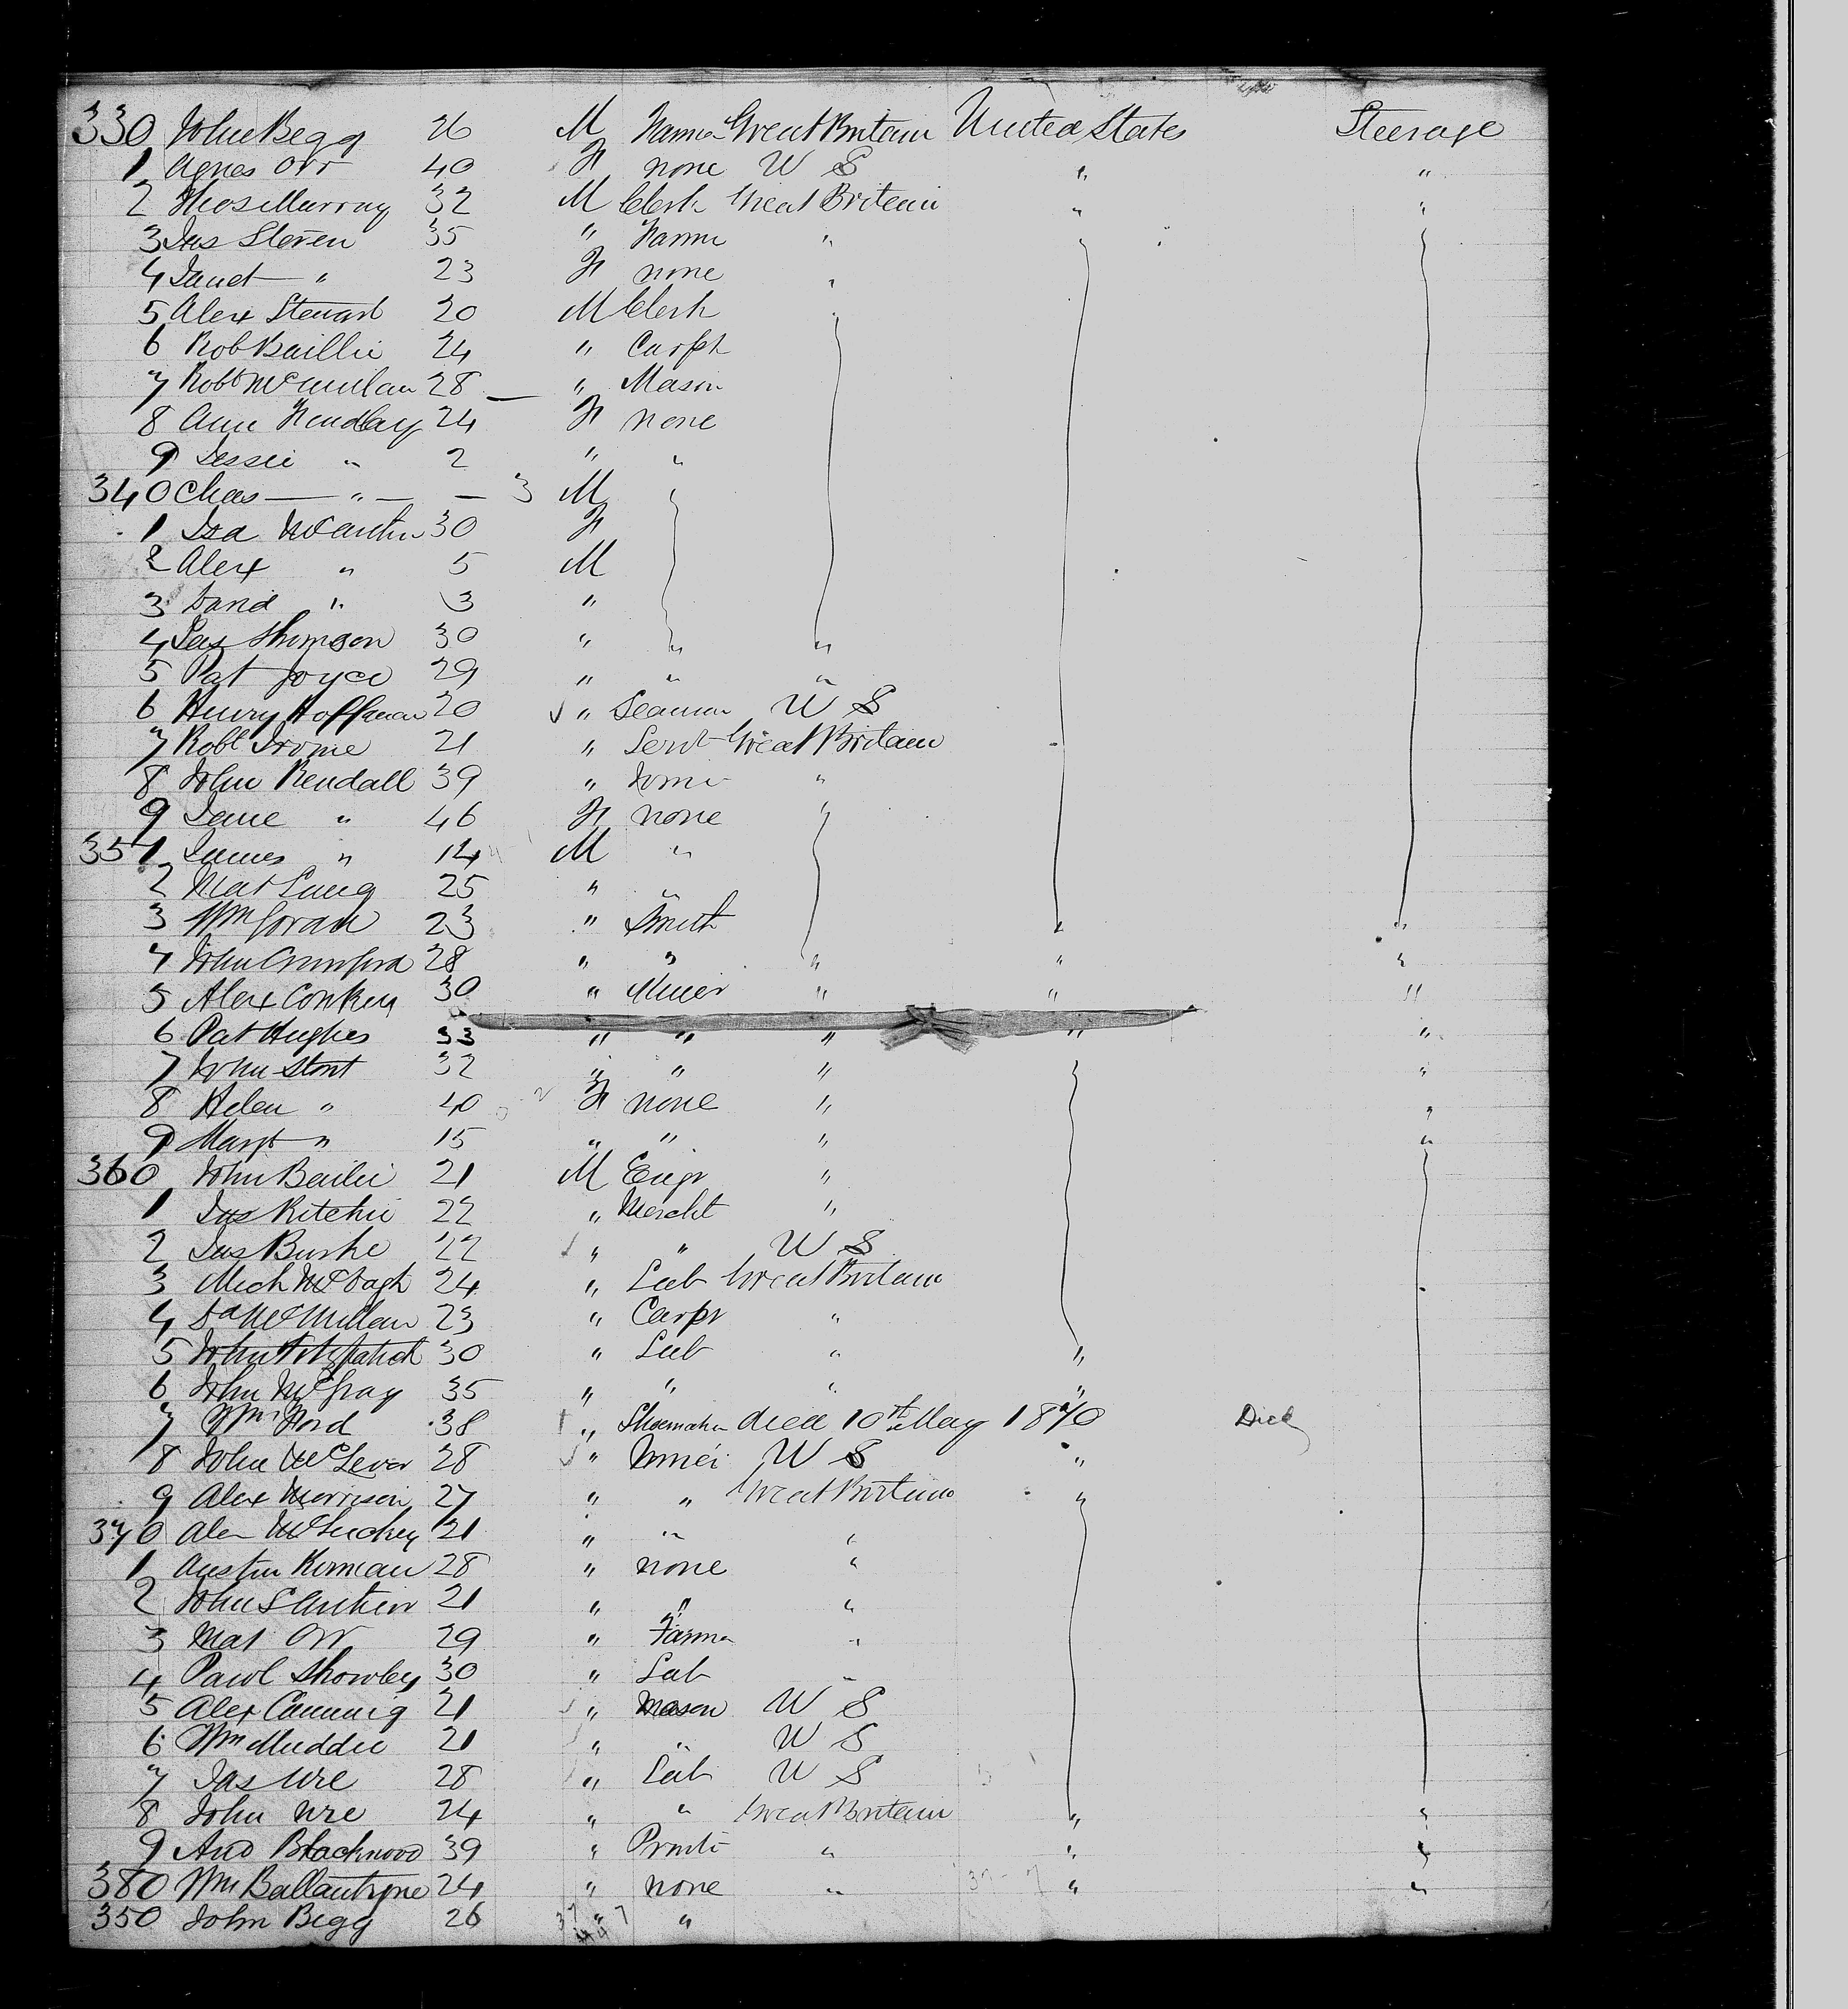 330 John Begg 26 M Farmer Great Britain United States Steerage
1 Agnes Orr 40 F none U S " "
2 Thos Murray 32 M Clerk Great Britain " "
3 Jas Steven 35 " Farmr " "
4 Janet " 23 F none "
5 Alex Stewart 20 M Clerk "
6 Rob Baillie 24 " Carpt
7 Robt McMillan 28 " Mason
8 Ann Findlay 24 F none
9 Jessie " 2 " "
340 Chas " 3 M "
1 Isa 30 F
2 Alex " 5 M
3 David " 3 "
4 Jas Thomson 30 " " "
5 Pat Joyce 29 " " "
6 Henry Hoffman 20 " Seaman U S
7 Robt 21 " Servt Great Britain
8 John Rendall 39 " "
9 Jane " 46 F none "
351 James " 14 M "
2 Mat Lang 25 " "
3 Wm 23 " Smith " "
4 John Crawford 28 " " " " "
5 Alex Conkey 30 " Miner " " "
6 Pat Hughes 33 " " " " "
7 John Stont 32 " " " "
8 Helen " 40 F none " "
9 Margt " 15 " " " "
360 John Bailie 21 M Engr "
1 Jas Ritchie 22 " Mercht "
2 Jas Burke 22 " " U S
3 Mich 24 " Lab Great Britain
4 McMillan 23 " Carpr "
5 John Fitzpatrick 30 " Lab " "
6 John 35 " " " "
7 Wm Ford 38 " Shoemaker died 10th May 1870 Died
8 John 28 " U S "
9 Alex Morrison 27 " " Great Britain "
370 McLuckey 21 " " "
1 Austin Kirnean 28 " none "
2 John 21 " " "
3 Mat Orr 29 " Farmer "
4 Paul 30 " Lab "
5 Alex 21 " Mason U S
6 Wm Muddie 21 " " U S
7 Jas Ure 28 " Lab U S
8 John Ure 24 " " Great Britain " "
9 And Blackwood 39 " " " "
380 Wm Ballantyne 24 " none " " "
350 John Begg 26 " "